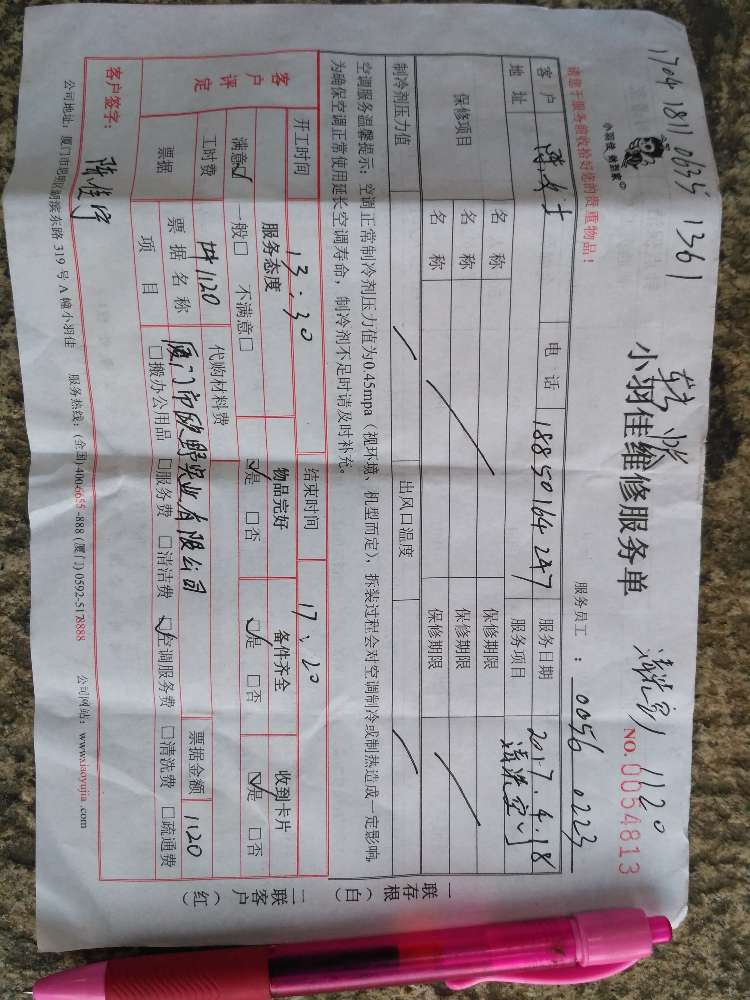 1704 1811 0635 1361
小羽佳 帮到家
转账
清洗空 1120
小羽佳维修服务单
NO.0054813
请您于服务前收拾好您的贵重物品！
服务员工：0056 0223
客户 陈女士 电话 18850164247 服务日期 2017.4.18
地址 服务项目 清洗空
保修项目 名称 保修期限
名称 保修期限
名称 保修期限
制冷剂压力值 出风口温度
空调服务温馨提示：空调正常制冷剂压力值为0.45mpa（视环境、机型而定），拆装过程会对空调制冷或制热造成一定影响，
为确保空调正常使用延长空调寿命，制冷剂不足时请及时补充。
开工时间 13:30 结束时间 17:20
客户评定 服务态度 物品完好 备件齐全 收到卡片
满意☑ 一般□ 不满意□ ☑是 □否 ☑是 □否 ☑是 □否
工时费 ¥1120 代购材料费
票据 票据名称 厦门市欧野实业有限公司 票据金额 1120
项目 □搬办公用品 □服务费 □清洁费 ☑空调服务费 □清洗费 □疏通费
客户签字：
公司地址：厦门市思明区湖滨东路319号A幢小羽佳 服务热线：(全国)4006655-888 (厦门)0592-5178888 公司网站：www.xiaoyujia.com
一联存根（白）
二联客户（红）